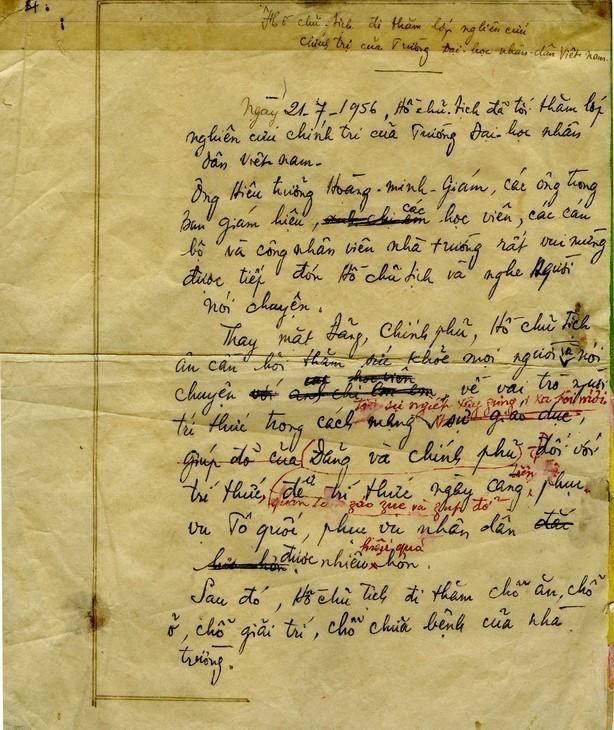 Hồ chủ-tịch đi thăm lớp nghiên cứu
chính trị của Trường Đại-học nhân-dân Việt-nam.
Ngày 21-7-1956, Hồ chủ tịch đã tới thăm lớp
nghiên cứu chính trị của Trường Đại-học nhân
dân Việt-nam.
Ông Hiệu trưởng Hoàng-minh-Giám, các ông trong
ban giám hiệu, các học viên, các cán
bộ và công nhân viên nhà trường rất vui mừng
được tiếp đón Hồ chủ tịch và nghe Người
nói chuyện.
Thay mặt Đảng, Chính phủ, Hồ chủ tịch
ân cần hỏi thăm sức khỏe mọi người và nói
học viên
chuyện với anh chị em về vai trò người
xây dựng xã hội mới
trí thức trong cách mạng, sự giáo dục,
giúp đỡ của Đảng và chính phủ đối với
trí thức, để trí thức ngày càng phục
quan tâm giáo dục và giúp đỡ
vụ Tổ quốc, phục vụ nhân dân
hiệu quả
được nhiều hơn.
Sau đó, Hồ chủ tịch đi thăm chỗ ăn, chỗ
ở, chỗ giải trí, chỗ chữa bệnh của nhà
trường.